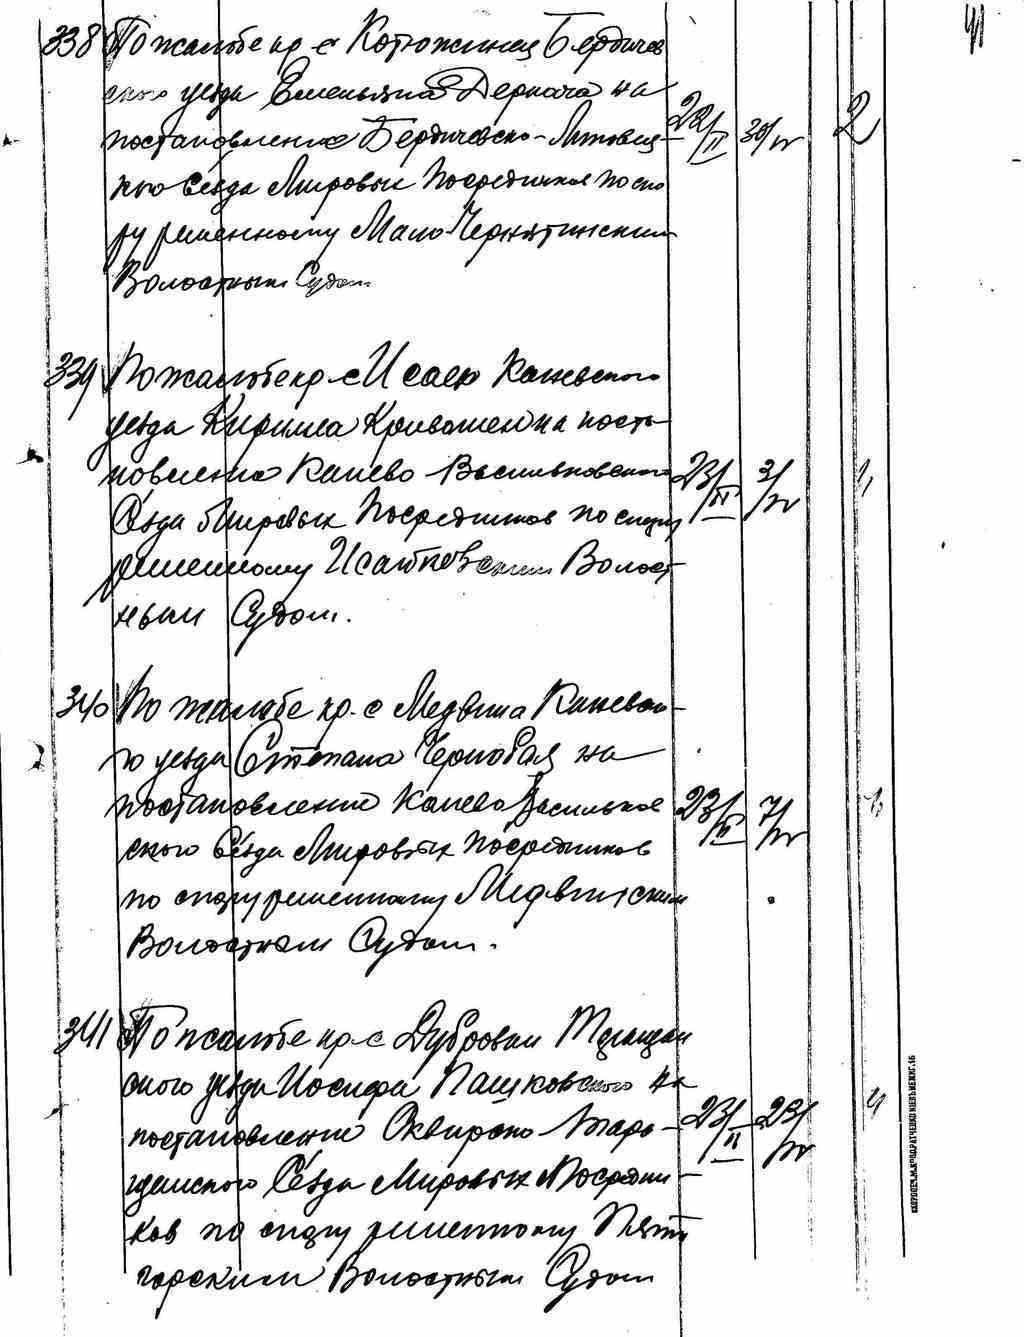 41
338 По жалобе кр. с Котюжинец Бердичев
ского уезда Емельяна Деркача на
постановление Бердичевско-Липовец-
кого Съезда Мировых Посредников по спо
ру решенному Мало-Чернятинским
Волостным Судом
22/II 30/IV 2
339 По жалобе кр. с Исаек Каневского
уезда Кирилла Кривошеи на поста
новление Канево-Васильковского
Съезда Мировых Посредников по спору
решенному Исайковским Волост
ным Судом.
23/II 3/IV 4
340 По жалобе кр. с Медвина Каневско-
го уезда Степана на
постановление Канево Васильков
ского Съезда Мировых Посредников
по спору решенному Медвинским
Волостным Судом.
23/II 7/IV
341 По жалобе кр. с Дубровки Таращан
ского уезда Иосифа Пашковского на
постановление Сквирско-Тара-
щанского Съезда Мировых Посредни-
ков по спору решенному Пяти
горским Волостным Судом
23/II 23/IV 4